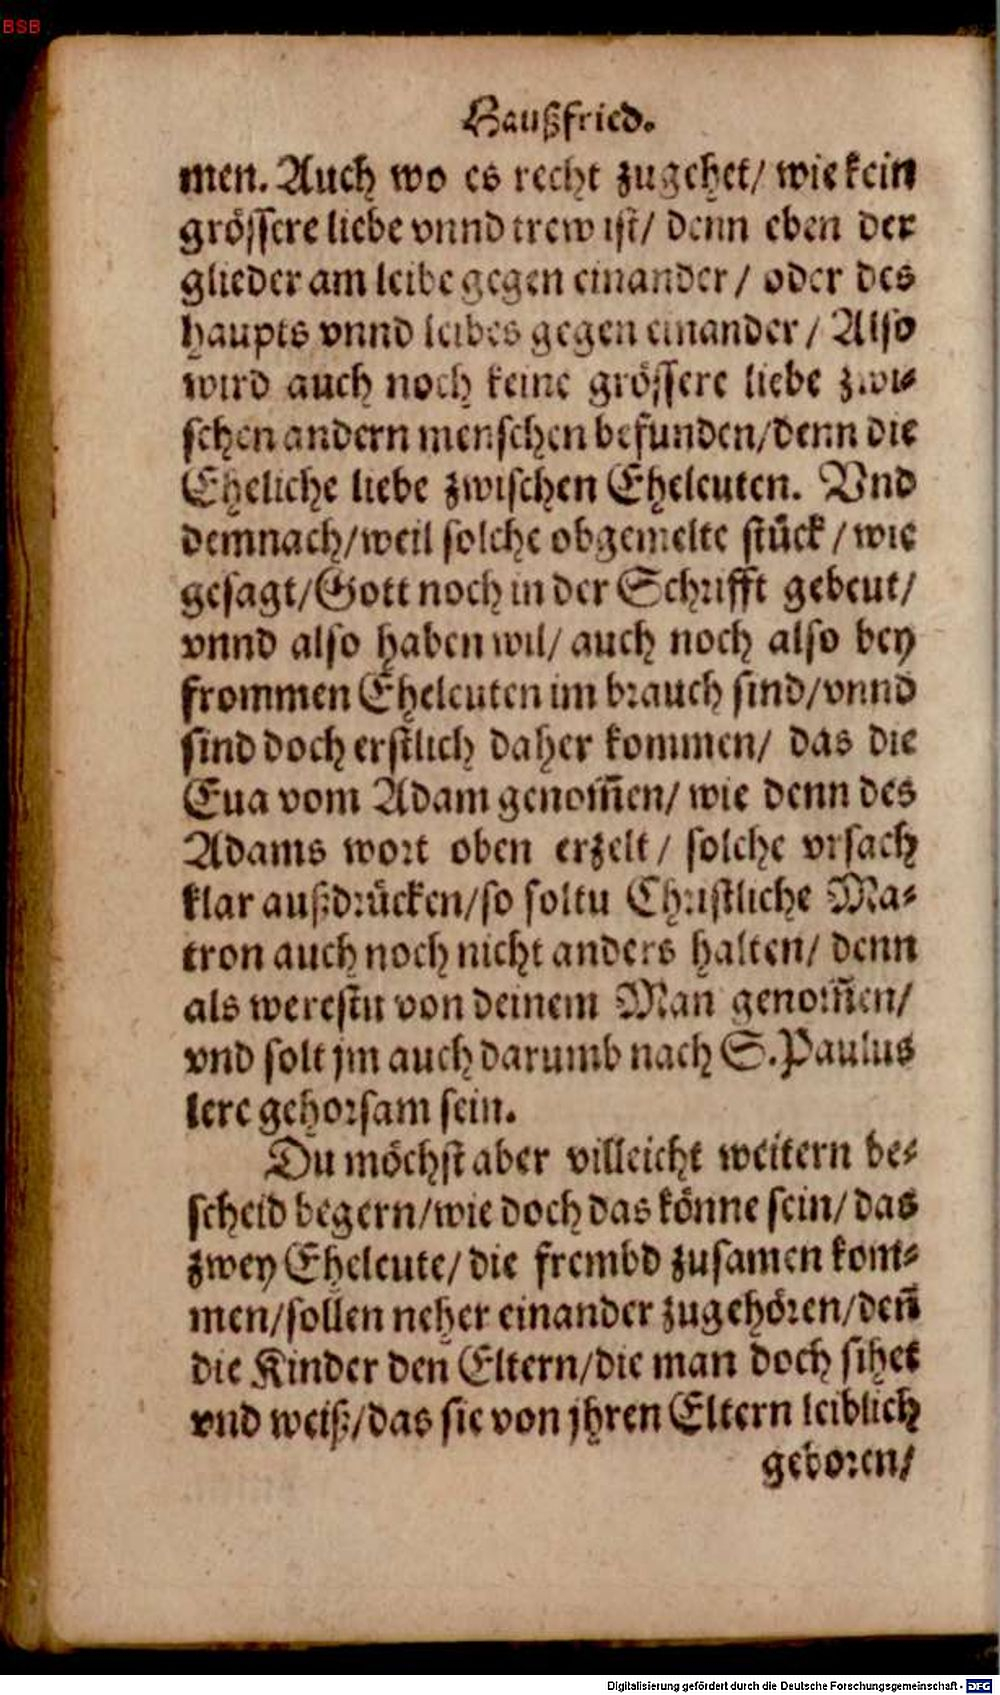 BSB
Haußfried.
men. Auch wo es recht zugehet/ wie kein
grössere liebe vnnd trew ist/ denn eben der
glieder am leibe gegen einander / oder des
haupts vnnd leibes gegen einander / Also
wird auch noch keine grössere liebe zwi-
schen andern menschen befunden/denn die
Eheliche liebe zwischen Eheleuten. Vnd
demnach/weil solche obgemelte stück / wie
gesagt/Gott noch in der Schrifft gebeut/
vnnd also haben wil/ auch noch also bey
frommen Eheleuten im brauch sind/vnnd
sind doch erstlich daher kommen/ das die
Eua vom Adam genom̃en/ wie denn des
Adams wort oben erzelt / solche vrsach
klar außdrücken/so soltu Christliche Ma-
tron auch noch nicht anders halten/ denn
als werestu von deinem Man genom̃en/
vnd solt jm auch darumb nach S.Paulus
lere gehorsam sein.
Du möchst aber villeicht weitern be-
scheid begern/wie doch das könne sein/das
zwey Eheleute/ die frembd zusamen kom-
men/sollen neher einander zugehören/den̄
die Kinder den Eltern/die man doch sihet
vnd weiß/das sie von jhren Eltern leiblich
geboren/
Digitalisierung gefördert durch die Deutsche Forschungsgemeinschaft - DFG